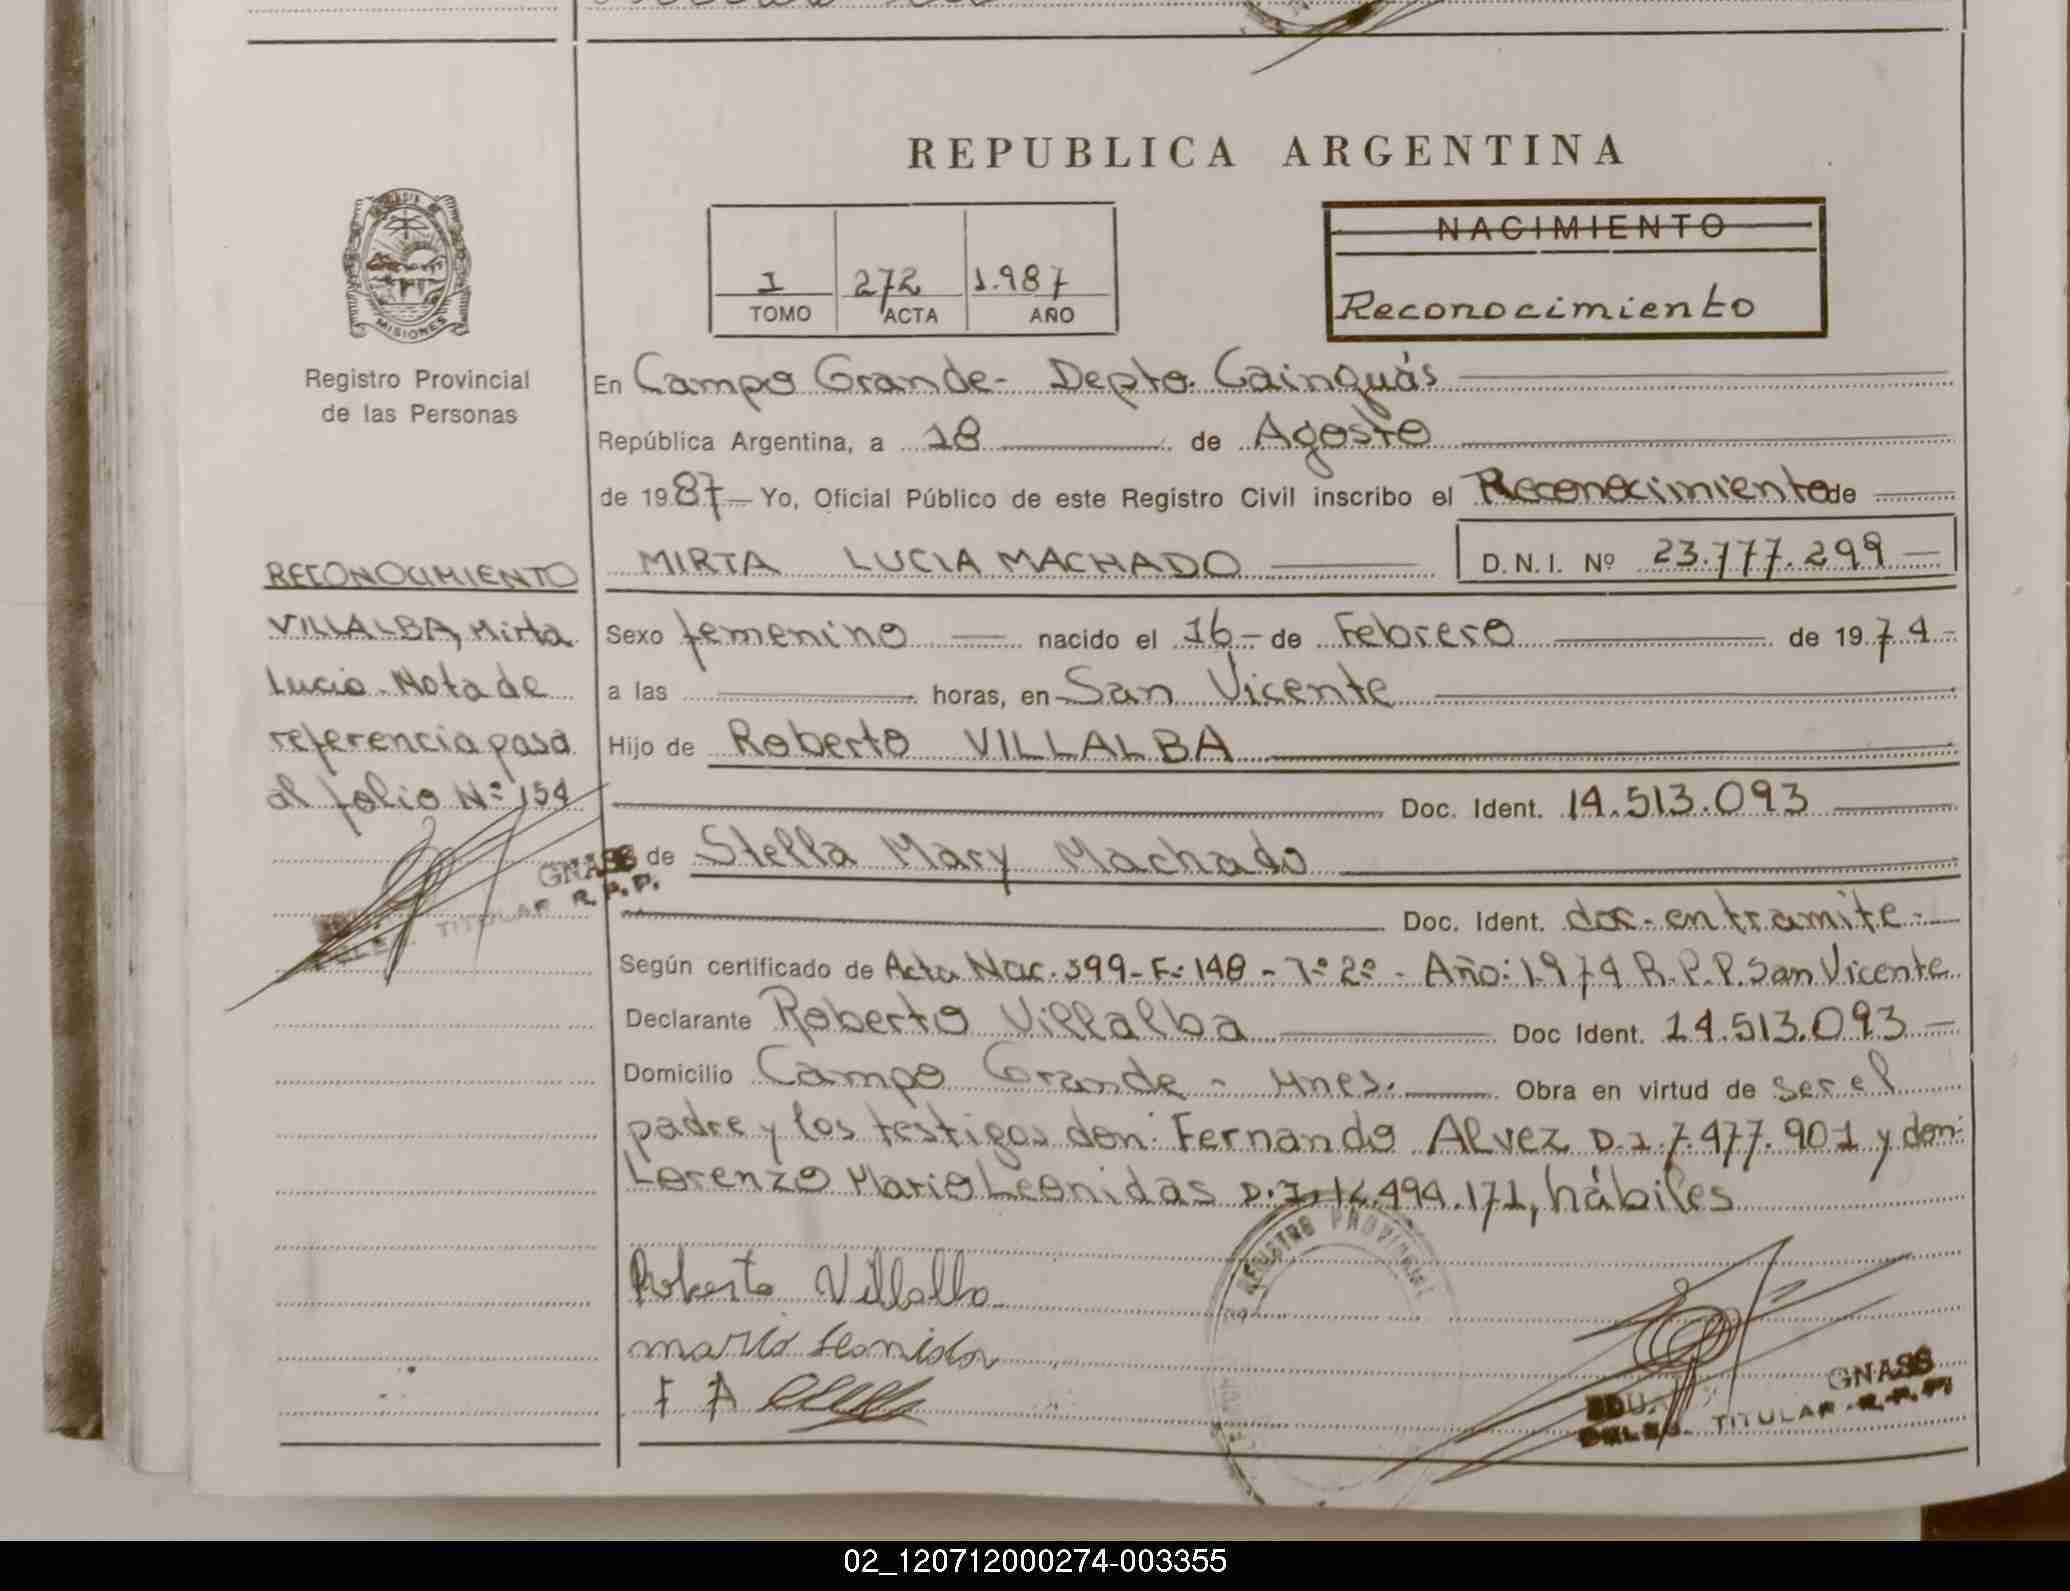 REPUBLICA ARGENTINA
I 272 1.987
TOMO ACTA AÑO
NACIMIENTO
Reconocimiento
MISIONES
Registro Provincial
de las Personas
En Campo Grande - Depto. Cainguás
República Argentina, a 18 de Agosto
de 1987 - Yo, Oficial Público de este Registro Civil inscribo el Reconocimiento de
MIRTA LUCIA MACHADO D.N.I. Nº 23.777.299
Sexo femenino nacido el 16 - de Febrero de 1974 -
a las horas, en San Vicente
Hijo de Roberto VILLALBA
Doc. Ident. 14.513.093
de Stella Mary Machado
Doc. Ident. doc. en tramite.-
Según certificado de Acta Nac. 399 - Fº 148 - Tº 2º - Año: 1974 R.P.P. San Vicente
Declarante Roberto Villalba Doc Ident. 14.513.093 -
Domicilio Campo Grande - Mnes. Obra en virtud de ser el
padre y los testigos don: Fernando Alvez D.I. 7.477.901 y don:
Lorenzo Mario Leonidas D.I. 12.494.171, hábiles
Roberto Villalba
mario leonidas
F A
REGISTRO PROVINCIAL
EDU. GNASS
DELEG. TITULAR R.P.P.
RECONOCIMIENTO
VILLALBA, Mirta
Lucia - Nota de
referencia pasa
al folio Nº 154
GNASS
DELEG. TITULAR R.P.P.
02_120712000274-003355